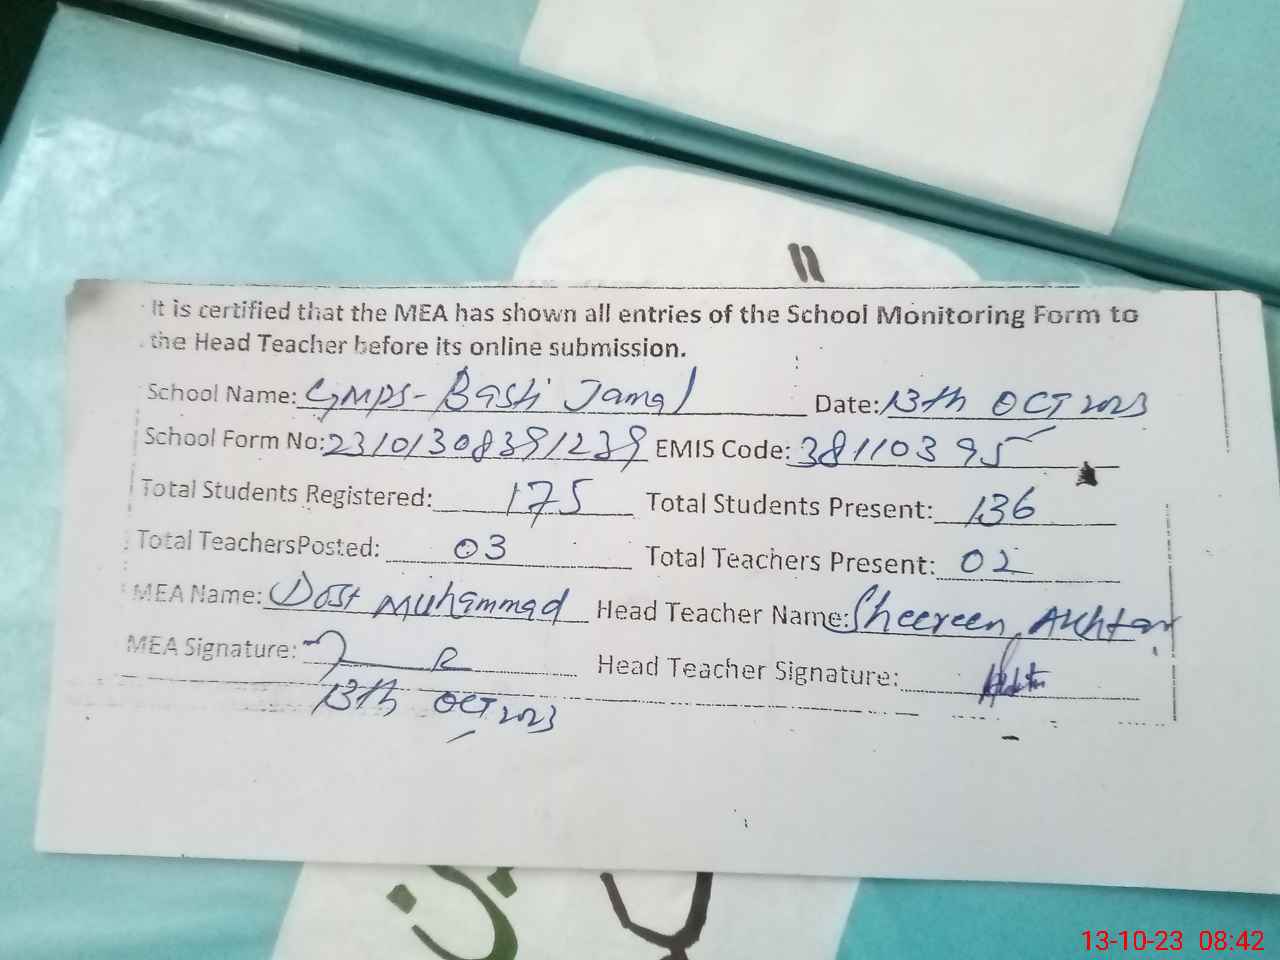 It is certified that the MEA has shown all entries of the School Monitoring Form to
the Head Teacher before its online submission.
School Name: GMPS-Basti Jamal Date: 13th OCT 2023
School Form No: 23101308391239 EMIS Code: 38110395
Total Students Registered: 175 Total Students Present: 136
Total TeachersPosted: 03 Total Teachers Present: 02
MEA Name: Dost Muhammad Head Teacher Name: Sheereen Akhtar
MEA Signature: Head Teacher Signature:
13th OCT 2023
13-10-23 08:42